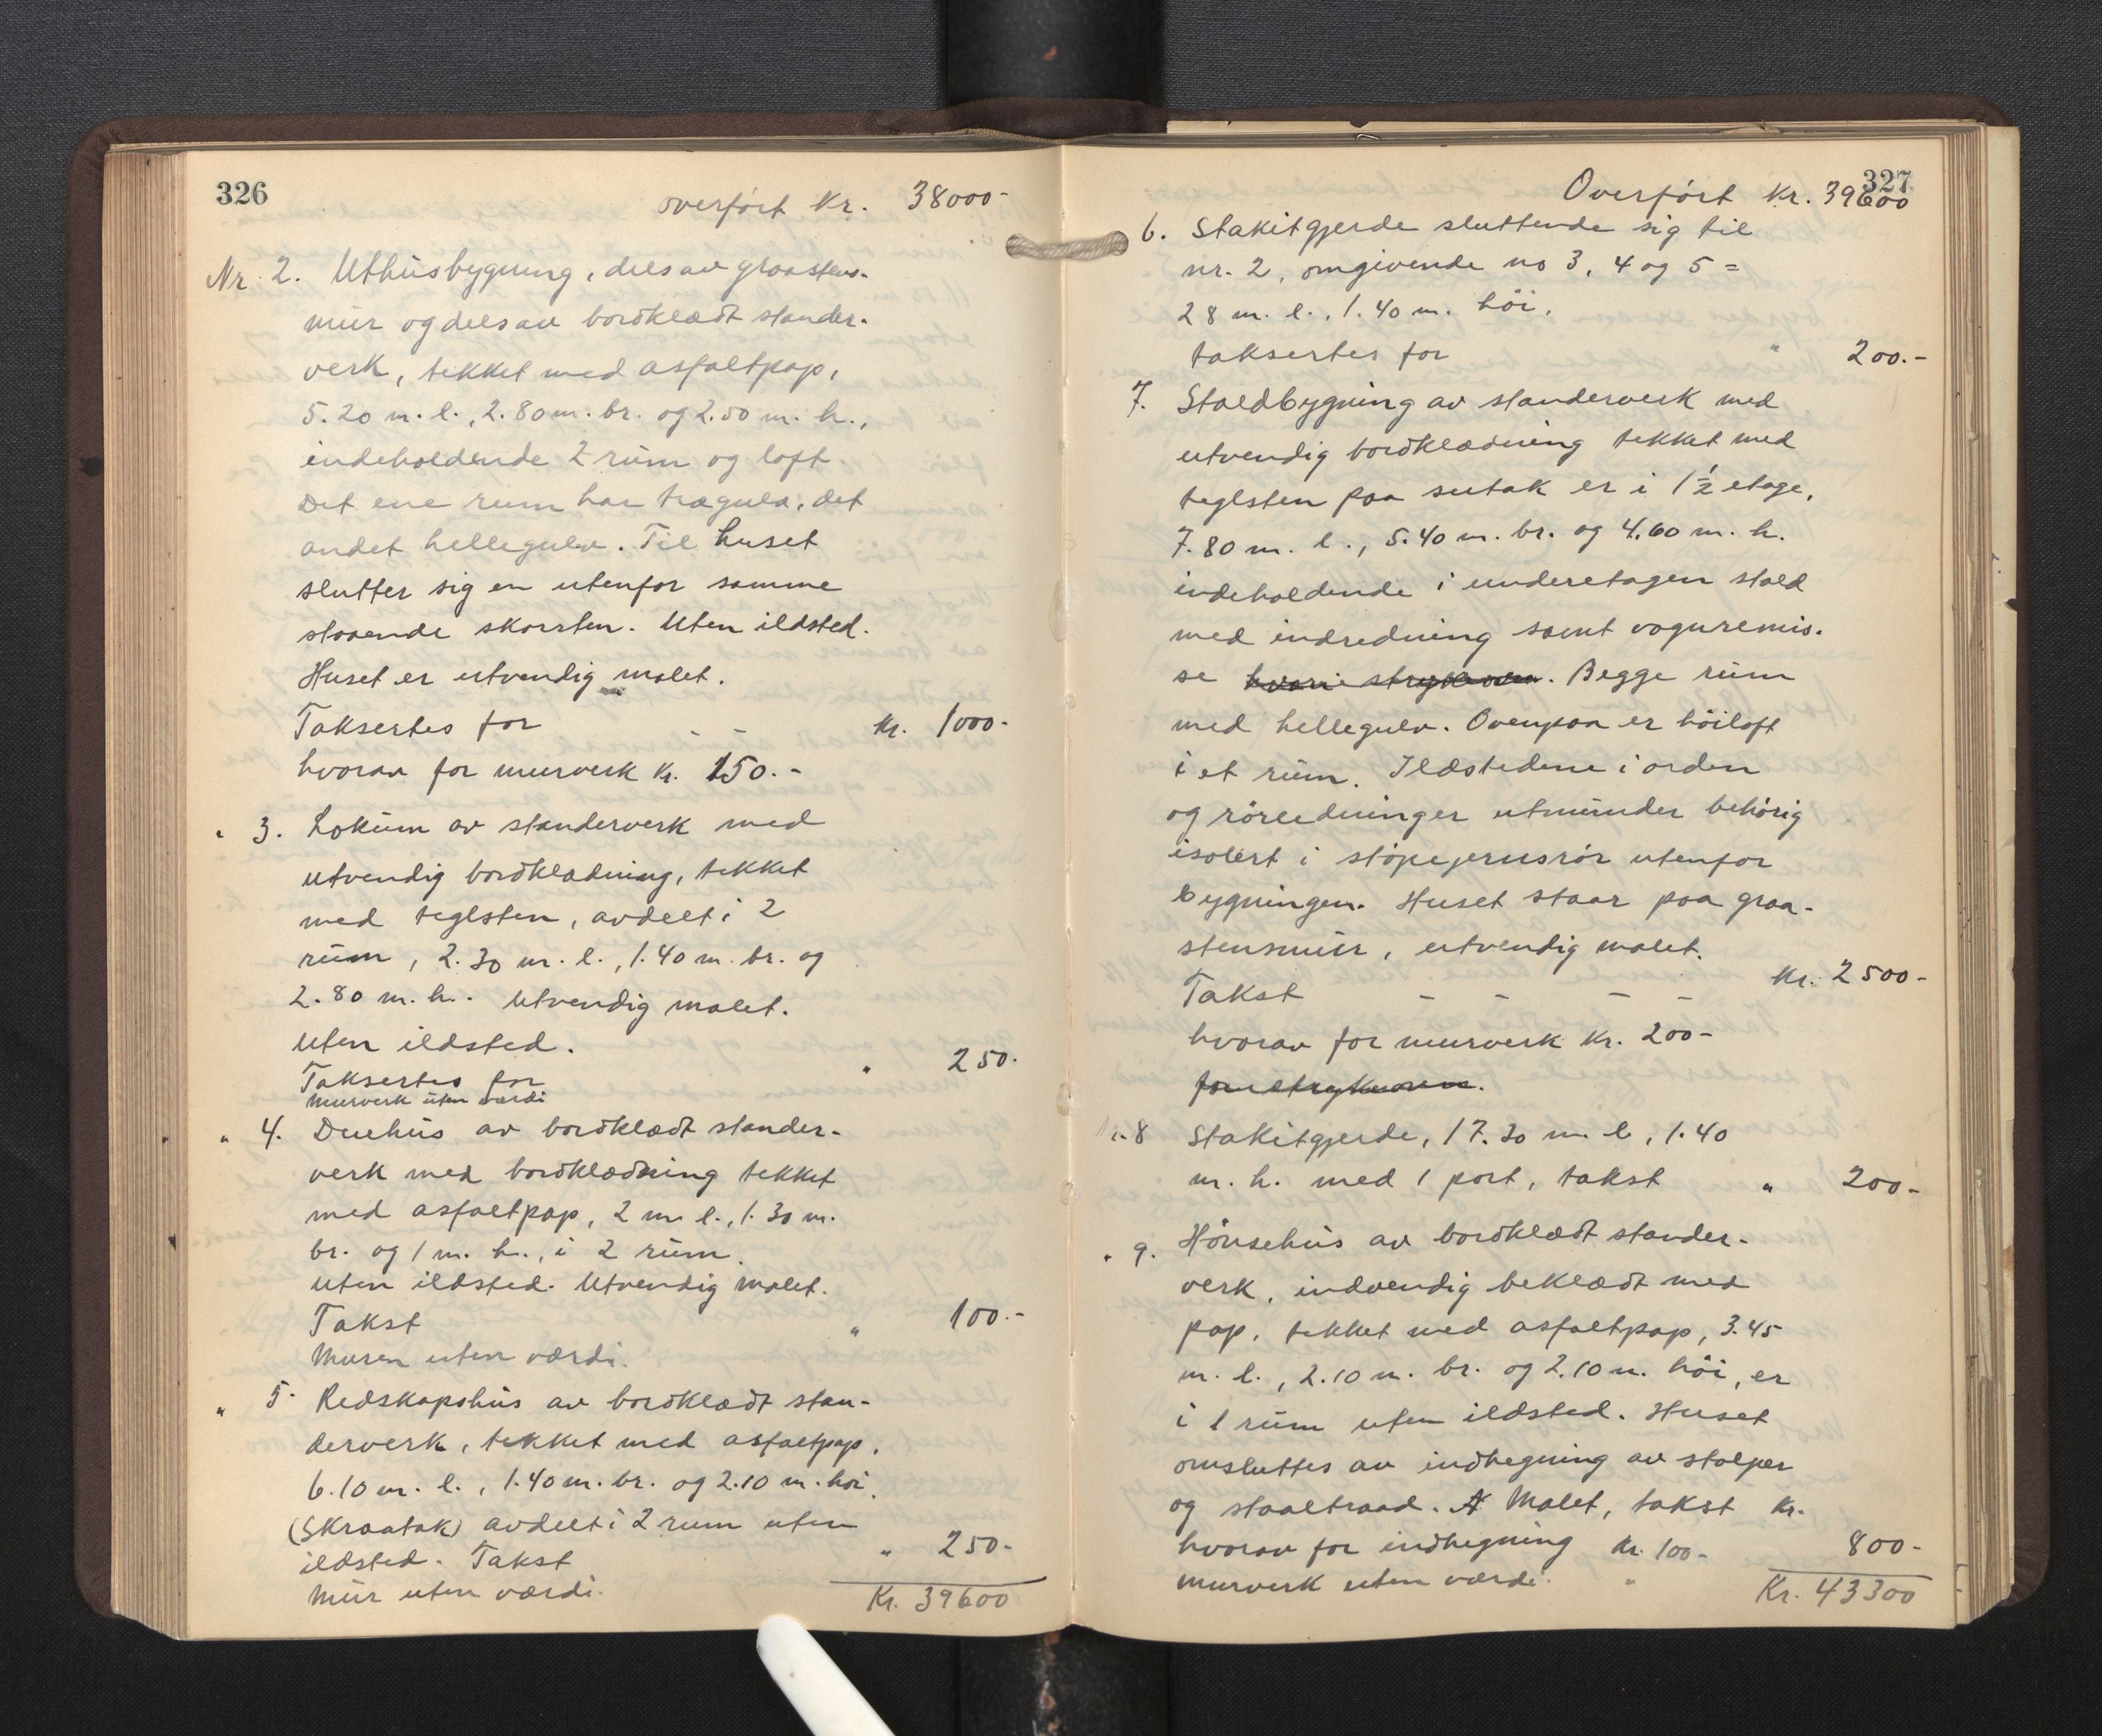 326
overført Kr. 38000-
Nr. 2. Uthusbygning, dels av graastens-
mur og dels av bordklædt stander-
verk, tekket med asfaltpap,
5.20 m. l., 2.80 m. br. og 2.50 m. h.,
indeholdende 2 rum og loft.
Det ene rum har trægulv, det
andet hellegulv. Til huset
slutter sig en utenfor samme
staaende skorsten. Uten ildsted.
Huset er utvendig malet.
Taksertes for - - Kr. 1000-
hvorav for murverk Kr. 150.-
" 3. Lokum av standerverk med
utvendig bordklædning, tekket
med teglsten, avdelt i 2
rum, 2.30 m. l., 1.40 m. br. og
2.80 m. h.. Utvendig malet.
Uten ildsted.
Taksertes for " 250.
Murverk uten værdi
" 4. Duehus av bordklædt stander-
verk med bordklædning tekket
med asfaltpap, 2 m l., 1.30 m.
br. og 1 m. h., i 2 rum.
Uten ildsted. Utvendig malet.
Takst " 100.-
Muren uten værdi.
" 5. Redskapshus av bordklædt stan-
derverk, tekket med asfaltpap,
6.10 m. l., 1.40 m. br. og 2.10 m. høi.
(Skraatak) avdelt i 2 rum uten
ildsted. Takst " 250-
Mur uten værdi.
Kr. 39600
327
Overført Kr. 39600
6. Stakitgjerde sluttende sig til
nr. 2, omgivende no 3, 4 og 5 =
28 m. l., 1.40 m. høi.
taksertes for " 200.-
7. Staldbygning av standerverk med
utvendig bordklædning tekket med
teglsten paa sutak er i 1 1/2 etage,
7.80 m. l., 5.40 m. br. og 4.60 m. h.
indeholdende i underetagen stald
med indredning samt vognremis-
se hvori strykeovn. Begge rum
med hellegulv. Ovenpaa er høiloft
i et rum. Ildstedene i orden
og rørledninger utmunder behørig
isolert i støpejernsrør utenfor
bygningen. Huset staar paa graa-
stensmur, utvendig malet.
Takst - - - - Kr. 2500-
hvorav for murverk Kr. 200-
for strykeovn.
" 8 Stakitgjerde, 17.30 m. l, 1.40
m. h. med 1 port, takst " 200-
" 9. Hönsehus av bordklædt stander-
verk, indvendig beklædt med
pap, tekket med asfaltpap, 3.45
m. l., 2.10 m. br. og 2.10 m. höi, er
i 1 rum uten ildsted. Huset
omsluttes av indhegning av stolper
og staaltraad. Malet, takst Kr.
hvorav for indhegning Kr. 100- 800-
murverk uten værdi. "
Kr. 43300